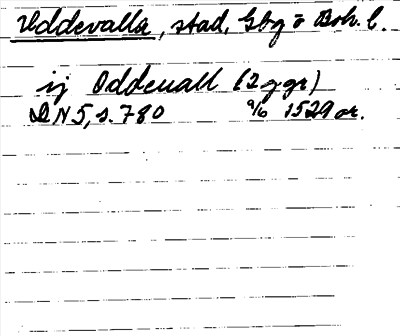 Uddevalla, stad, Gbg o Boh. l.
ij Oddeuall (2 ggr)
DN 5, s. 780 % 1529 or.